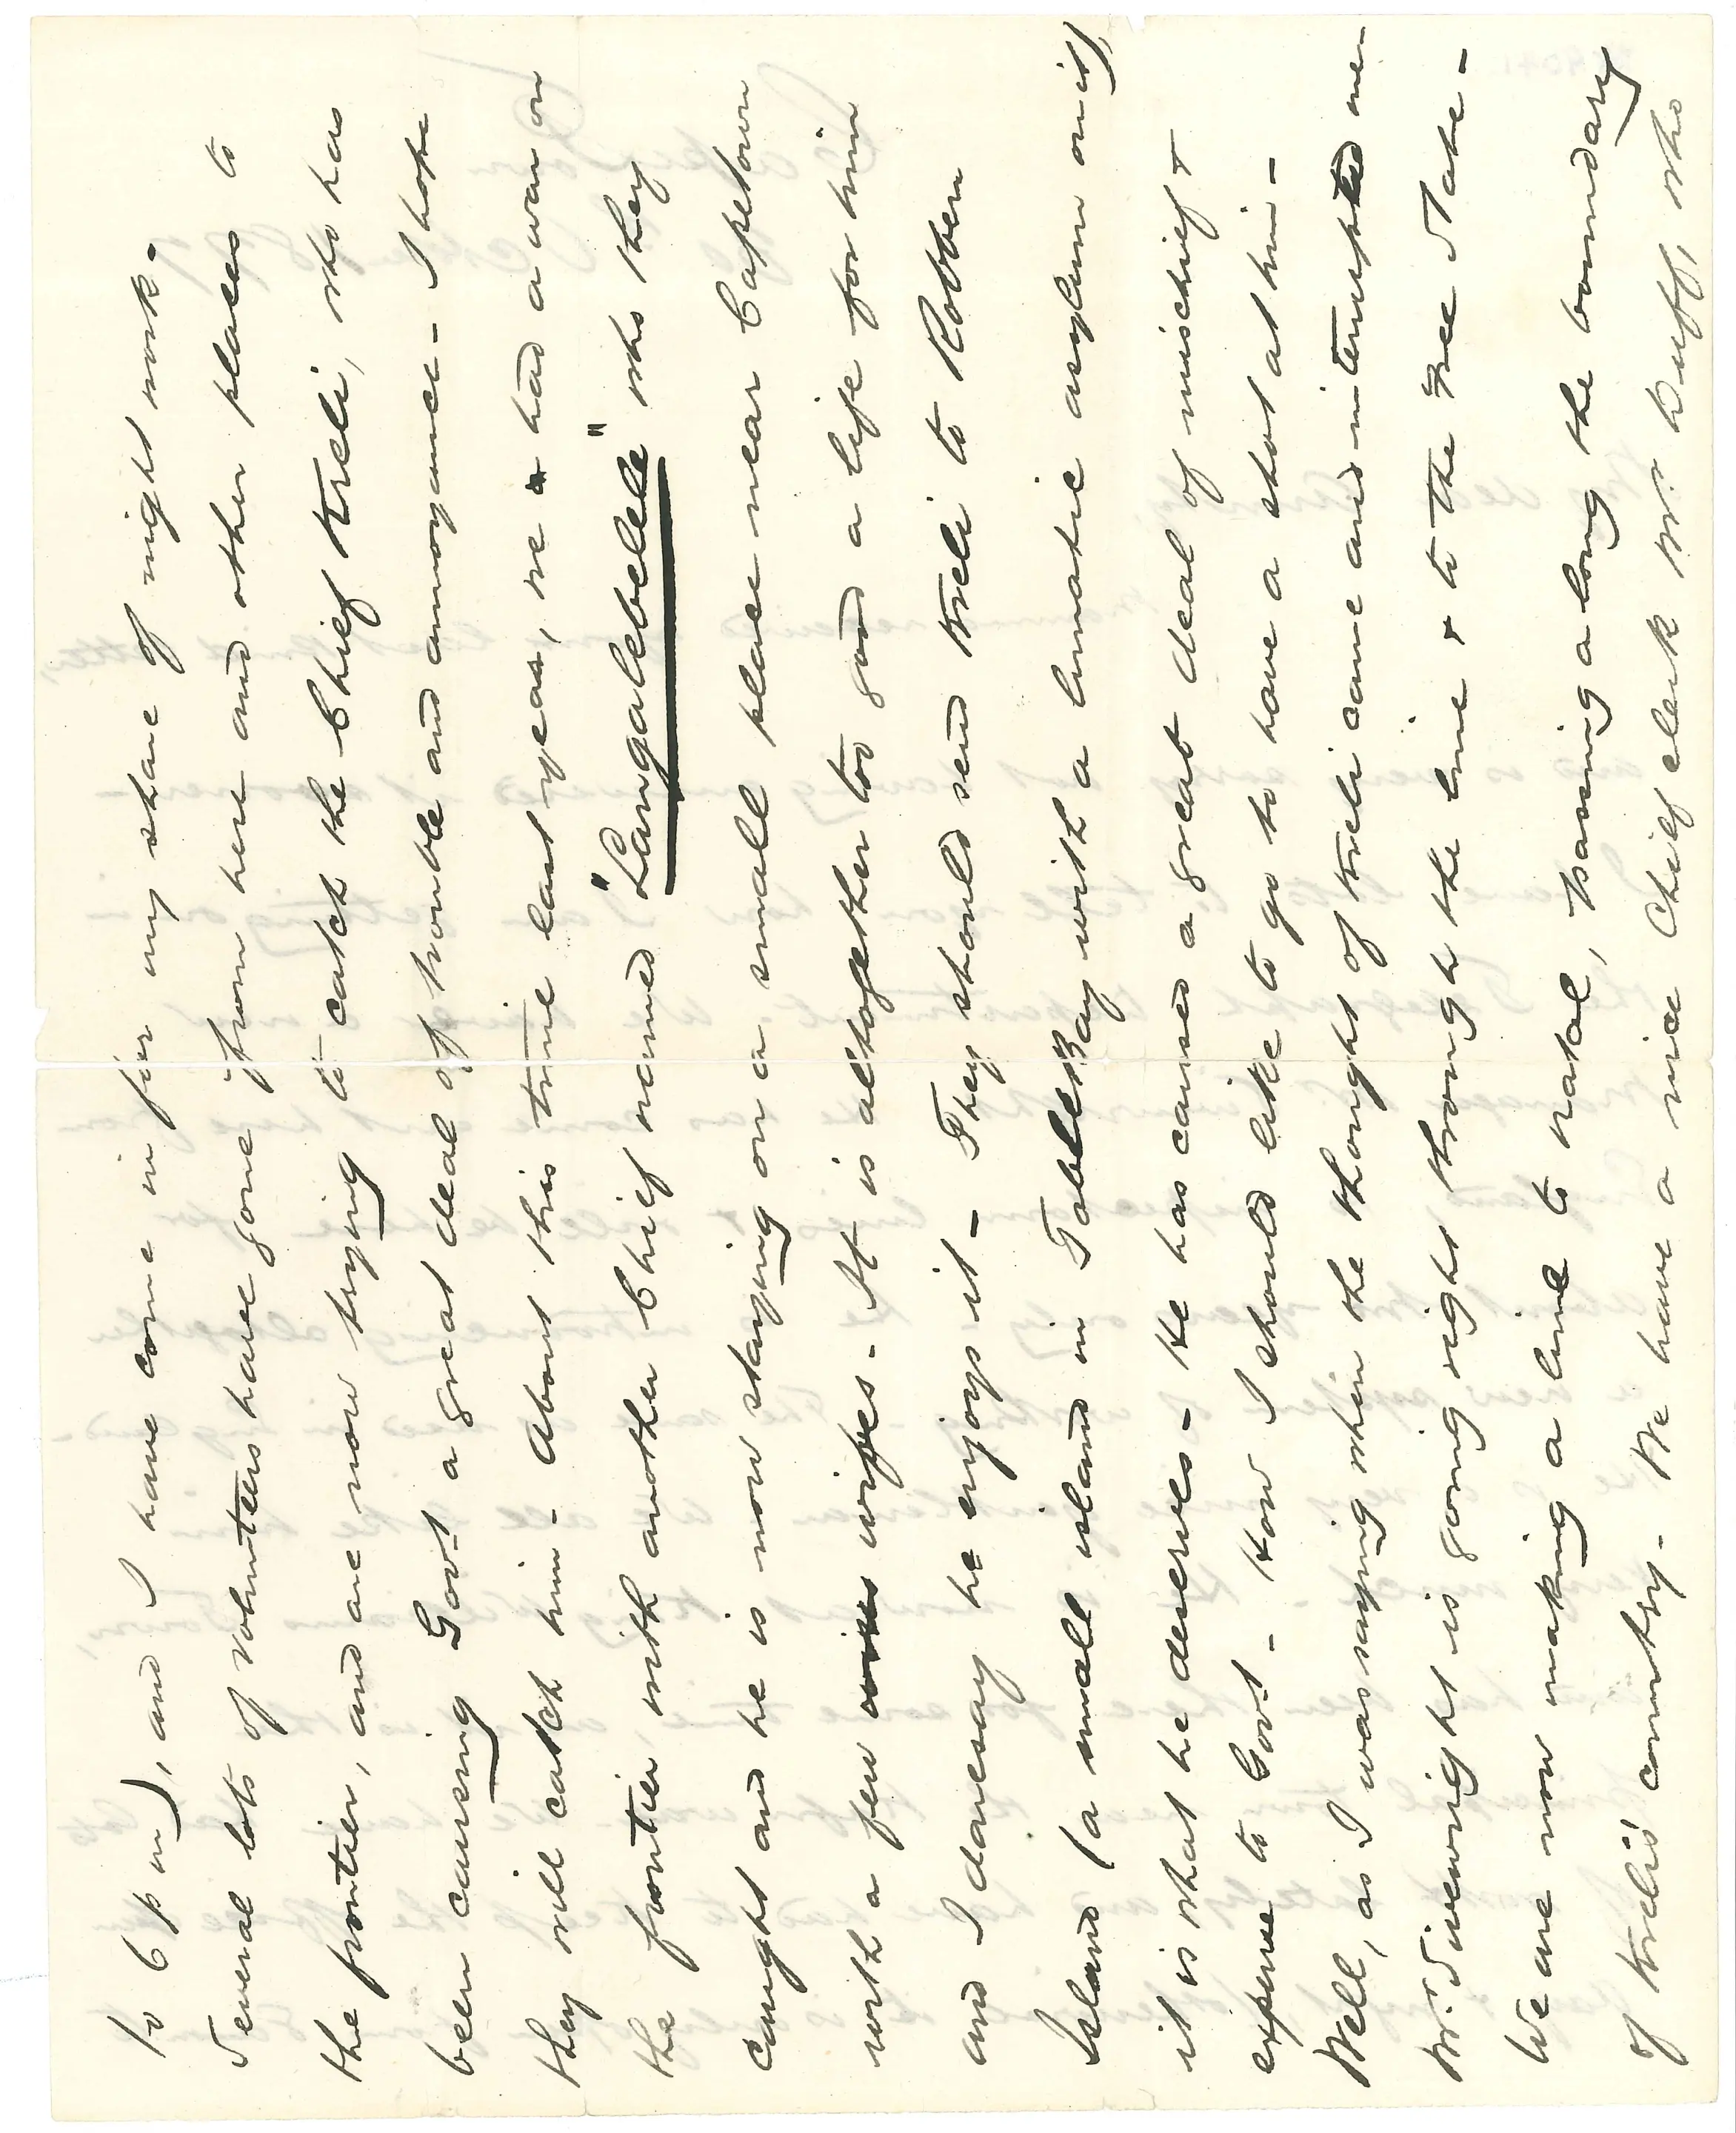 to 6 p m), and I have come in for my share of night work -
Several lots of volunteers have gone from here and other places to
the frontier, and are now trying to catch the Chief Kreli, who has
been causing Govt a great deal of trouble and annoyance - I hope
they will catch him - About this time last year, we had a war on
the frontier with another Chief named "Langalebelele" who they
caught and he is now staying on a small place near Capetown
with a few wives - It is altogether too good a life for him
and I daresay he enjoys it - They should send Kreli to Robben
Island (a small island in Table Bay with a lunatic asylum on it),
it is what he deserves - He has caused a great deal of mischief &
expense to Govt - How I should like to go to have a shot at him -
Well, as I was saying when the thought of Kreli came and interrupted me -
Mr. Sivewright is going right through the line & to the Free State -
We are now making a line to Natal, passing along the boundary
of Kreli's country - We have a nice Chief clerk Mr. Duff, who